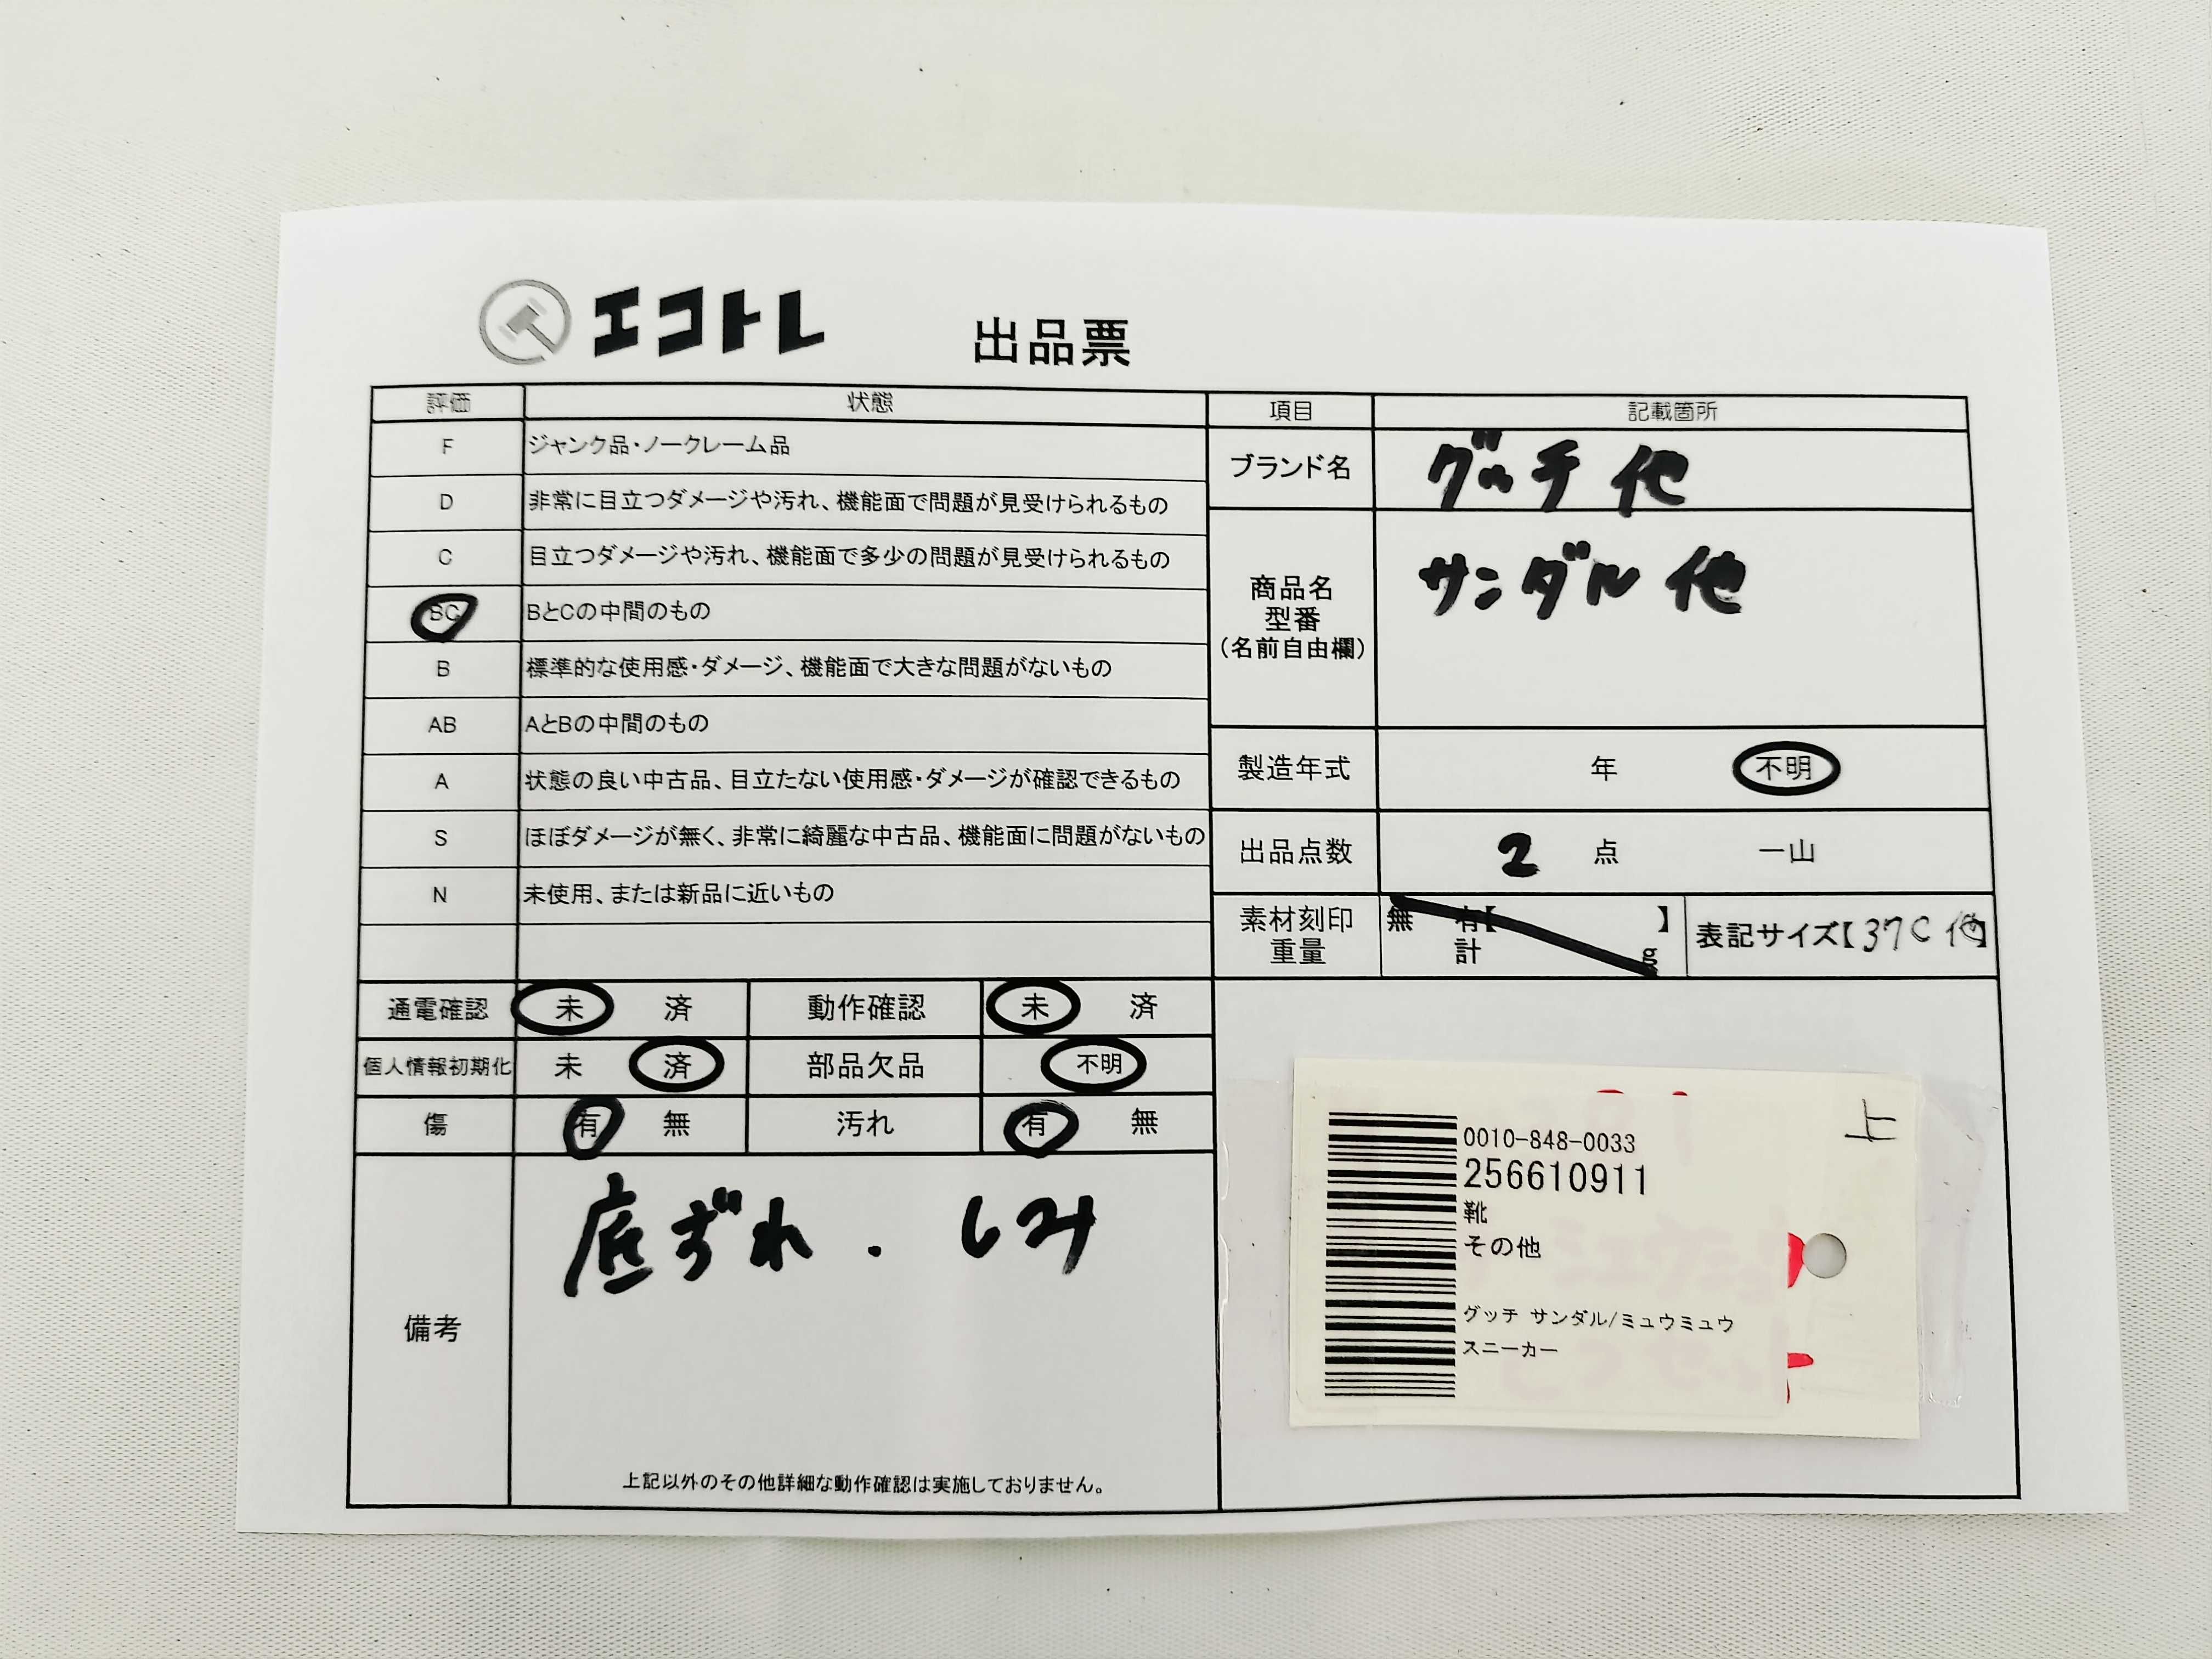 エコトレ 出品票
評価 状態 項目 記載箇所
F ジャンク品・ノークレーム品
D 非常に目立つダメージや汚れ、機能面で問題が見受けられるもの
C 目立つダメージや汚れ、機能面で多少の問題が見受けられるもの
BC BとCの中間のもの
B 標準的な使用感・ダメージ、機能面で大きな問題がないもの
AB AとBの中間のもの
A 状態の良い中古品、目立たない使用感・ダメージが確認できるもの
S ほぼダメージが無く、非常に綺麗な中古品、機能面に問題がないもの
N 未使用、または新品に近いもの
ブランド名 グッチ 他
商品名
型番
(名前自由欄)
サンダル 他
製造年式 年 不明
出品点数 2 点 一山
素材刻印 無 有【 】
重量 計 g
表記サイズ【37C 他】
通電確認 未 済 動作確認 未 済
個人情報初期化 未 済 部品欠品 不明
傷 有 無 汚れ 有 無
備考 底ずれ . しみ
上記以外のその他詳細な動作確認は実施しておりません。
上
0010-848-0033
256610911
靴
その他
グッチ サンダル/ミュウミュウ
スニーカー